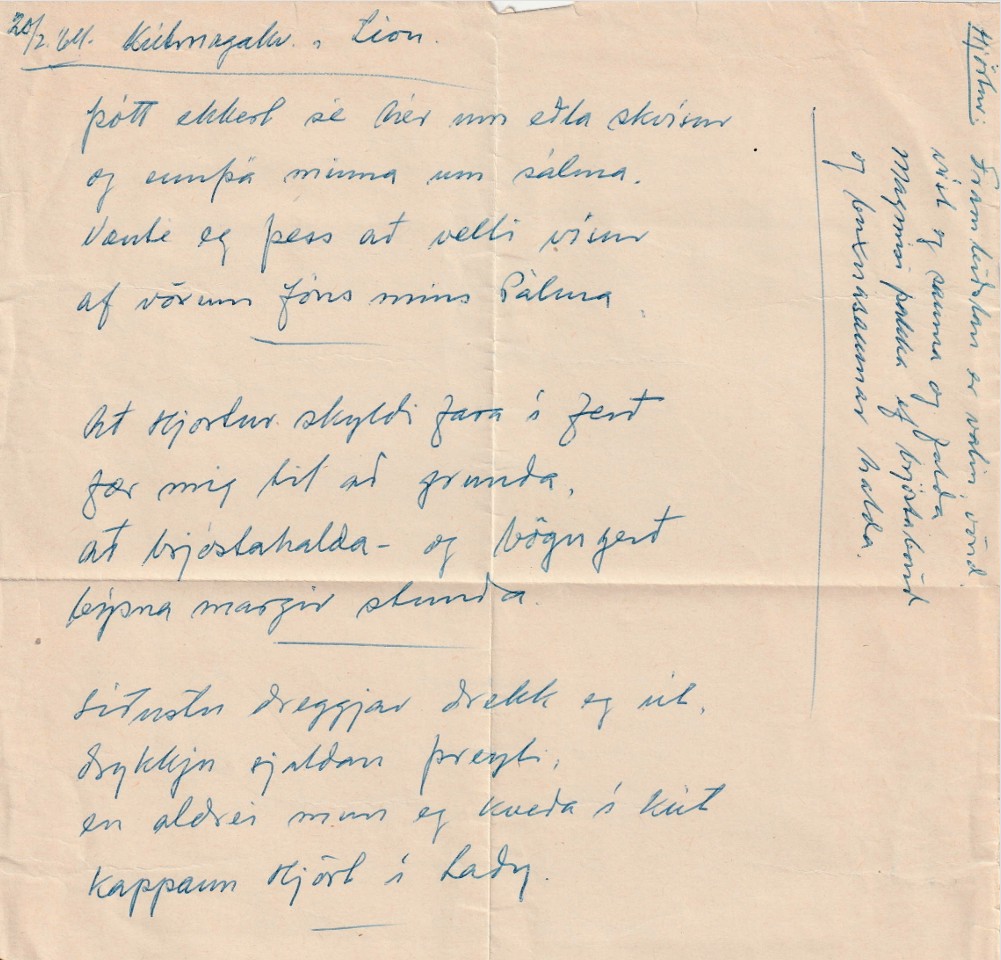 20/2. '64. Kútmagakv. í Lion.
þótt ekkert sé hér um eðla skvísur
og ennþá minna um sálma.
Vænti eg þess að velti vísur
af vörum Jóns míns Pálma
At Hjörtur skyldi fara í ferð
fær mig til að grunda,
að brjóstahalda- og bögugerð
býsna margir stunda.
Síðustu dreggjar drekk eg út,
drykkju sjaldan þreyti,
en aldrei mun eg kveða í kút
kappann Hjört í Lady.
Hjörtur:
Framleiðslan er valin, vönd
víst og sauma og falda
Magnúsi þakka eg brjóstabönd
og buxnasaumar halda.